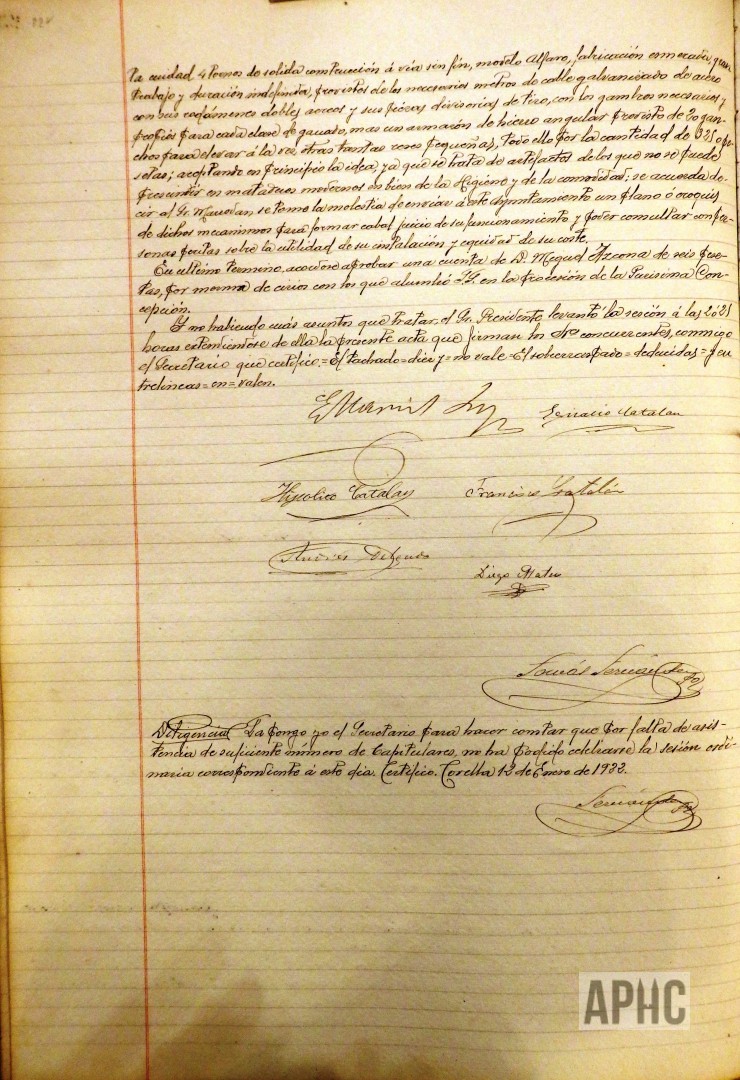 la ciudad 4 tornos de solida construcción á vía sin fin, modelo Alfaro, fabricación esmerada, gran
trabajo y duración indefinida, provistos de los necesarios metros de cable galvanizado de acero
con sus rodámenes dobles aereos y sus piezas divisorias de tiro, con los ganchos necesarios y
propios para cada clase de ganado, mas un armazón de hierro angular provisto de 20 gan-
chos para elevar á la vez otras tantas reses pequeñas, todo ello por la cantidad de pe-
setas; aceptando en principio la idea, ya que se trata de artefactos de los que no se puede
prescindir en mataderos modernos en bien de la Higiene y de la comodidad; se acuerda de-
cir al Sr. se tome la molestia de enviar á este Ayuntamiento un plano ó croquis
de dichos mecanismos para formar cabal juicio de su funcionamiento y poder consultar con per-
sonas peritas sobre la utilidad de su instalación y equidad de su coste.
En ultimo termino, acordose aprobar una cuenta de D. Miguel Azcona de seis pese-
tas, por merma de cirios con los que alumbró S.S. en la procesión de la Purisima Con-
cepción.
Y no habiendo más asuntos que tratar, el Sr. Presidente levantó la sesión á las
horas extendiéndose de ella la presente acta que firman los Sres concurrentes, conmigo
el Secretario que certifico.=El tachado=diez y=no vale=El sobrerraspado=deducidas=y en-
trelineas=en=valen.
Ignacio Catalan
Hipolito Catalan Francisco Catalán
Andrés Delgado
Diego Mateo
Tomás
Diligencia) La pongo yo el Secretario para hacer constar que por falta de asis-
tencia de suficiente número de Capitulares, no ha podido celebrarse la sesión ordi-
naria correspondiente á este dia. Certifico. Corella 12 de Enero de 1922.
APHC